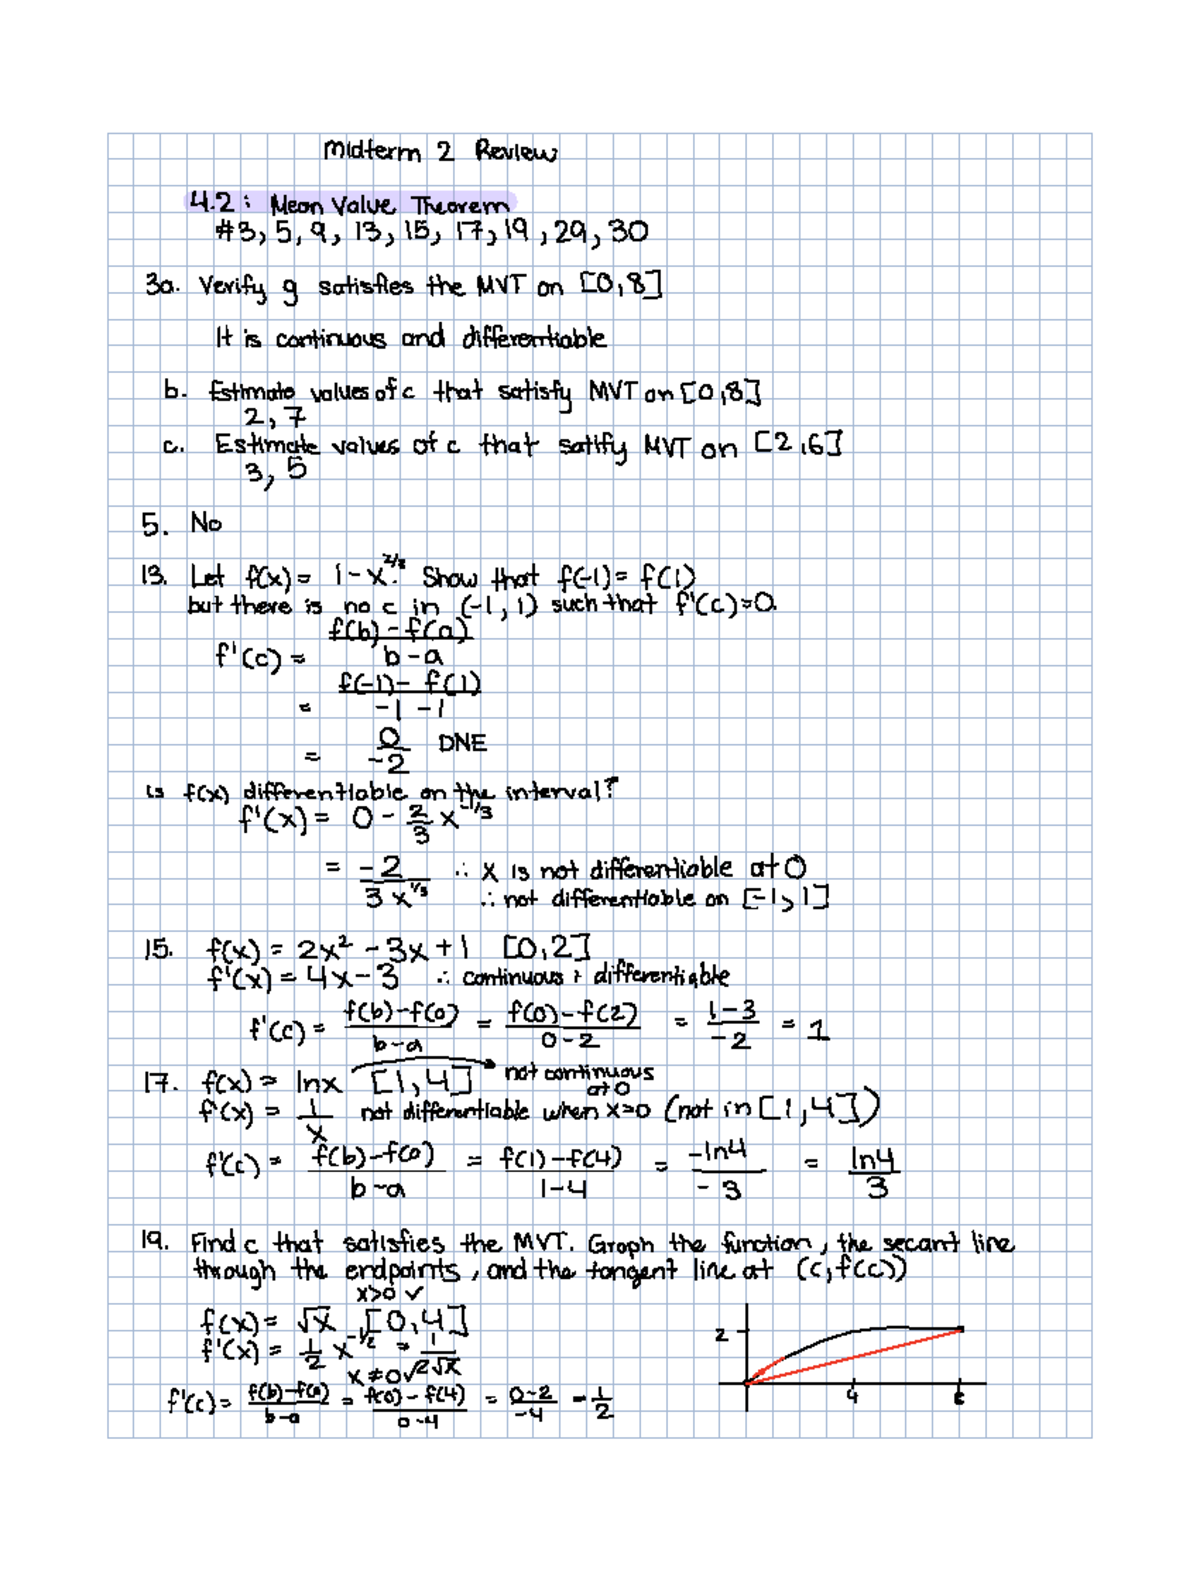 Midterm 2 Review
4.2: Mean Value Theorem
#3, 5, 9, 13, 15, 17, 19, 29, 30
3a. Verify g satisfies the MVT on [0,8]
It is continuous and differentiable
b. Estimate values of c that satisfy MVT on [0,8]
2, 7
c. Estimate values of c that satify MVT on [2,6]
3, 5
5. No
13. Let f(x) = 1-x^2/3. Show that f(-1) = f(1)
but there is no c in (-1, 1) such that f'(c)=0.
f'(c) = (f(b)-f(a))/(b-a)
= (f(-1)-f(1))/(-1-1)
= 0/-2 DNE
is f(x) differentiable on the interval?
f'(x) = 0 - 2/3 x^-1/3
= -2/(3x^1/3) ∴ x is not differentiable at 0
∴ not differentiable on [-1,1]
15. f(x) = 2x² - 3x + 1 [0,2]
f'(x) = 4x-3 ∴ continuous + differentiable
f'(c) = (f(b)-f(a))/(b-a) = (f(0)-f(2))/(0-2) = (1-3)/-2 = 1
17. f(x) = lnx [1,4] → not continuous at 0
f'(x) = 1/x not differentiable when x=0 (not in [1,4])
f'(c) = (f(b)-f(a))/(b-a) = (f(1)-f(4))/(1-4) = -ln4/-3 = ln4/3
19. Find c that satisfies the MVT. Graph the function, the secant line
through the endpoints, and the tangent line at (c, f(c))
x>0 ✓
f(x) = √x [0,4]
f'(x) = 1/2 x^-1/2 = 1/(2√x)
x≠0 ✓
f'(c) = (f(b)-f(a))/(b-a) = (f(0)-f(4))/(0-4) = (0-2)/-4 = 1/2
2
4